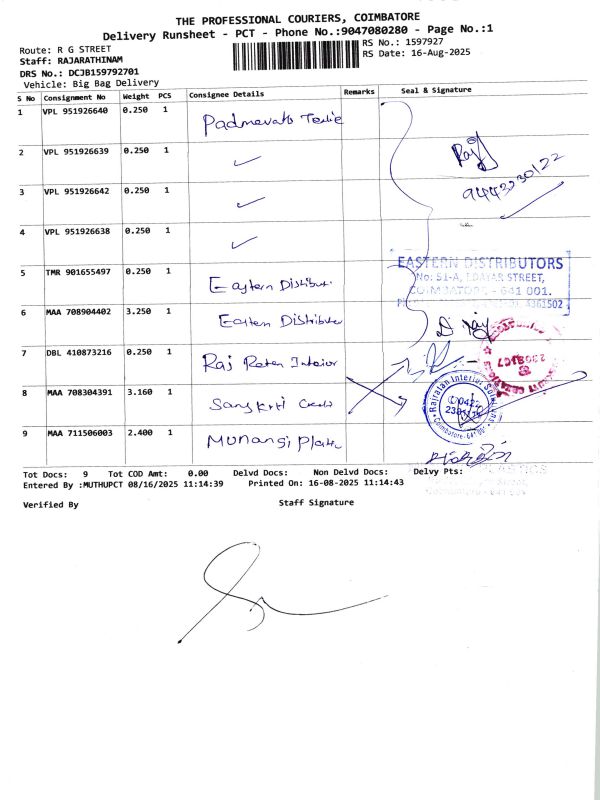 THE PROFESSIONAL COURIERS, COIMBATORE
Delivery Runsheet - PCT - Phone No.:9047080280 - Page No.:1
Route: R G STREET
RS No.: 1597927
Staff: RAJARATHINAM
RS Date: 16-Aug-2025
DRS No.: DCJB159792701
Vehicle: Big Bag Delivery
S No Consignment No Weight PCS Consignee Details Remarks Seal & Signature
1 VPL 951926640 0.250 1 Padmavati
2 VPL 951926639 0.250 1 ✓
Raj
3 VPL 951926642 0.250 1 ✓
4 VPL 951926638 0.250 1 ✓
EASTERN DISTRIBUTORS
No: 51-A, EDAYAR STREET,
COIMBATORE - 641 001.
4361502
5 TMR 901655497 0.250 1 Eastern
6 MAA 708904402 3.250 1 Eastern
7 DBL 410873216 0.250 1 Raj
8 MAA 708304391 3.160 1
9 MAA 711506003 2.400 1
Tot Docs: 9 Tot COD Amt: 0.00 Delvd Docs: Non Delvd Docs: Delvy Pts:
Entered By :MUTHUPCT 08/16/2025 11:14:39 Printed On: 16-08-2025 11:14:43
Verified By Staff Signature